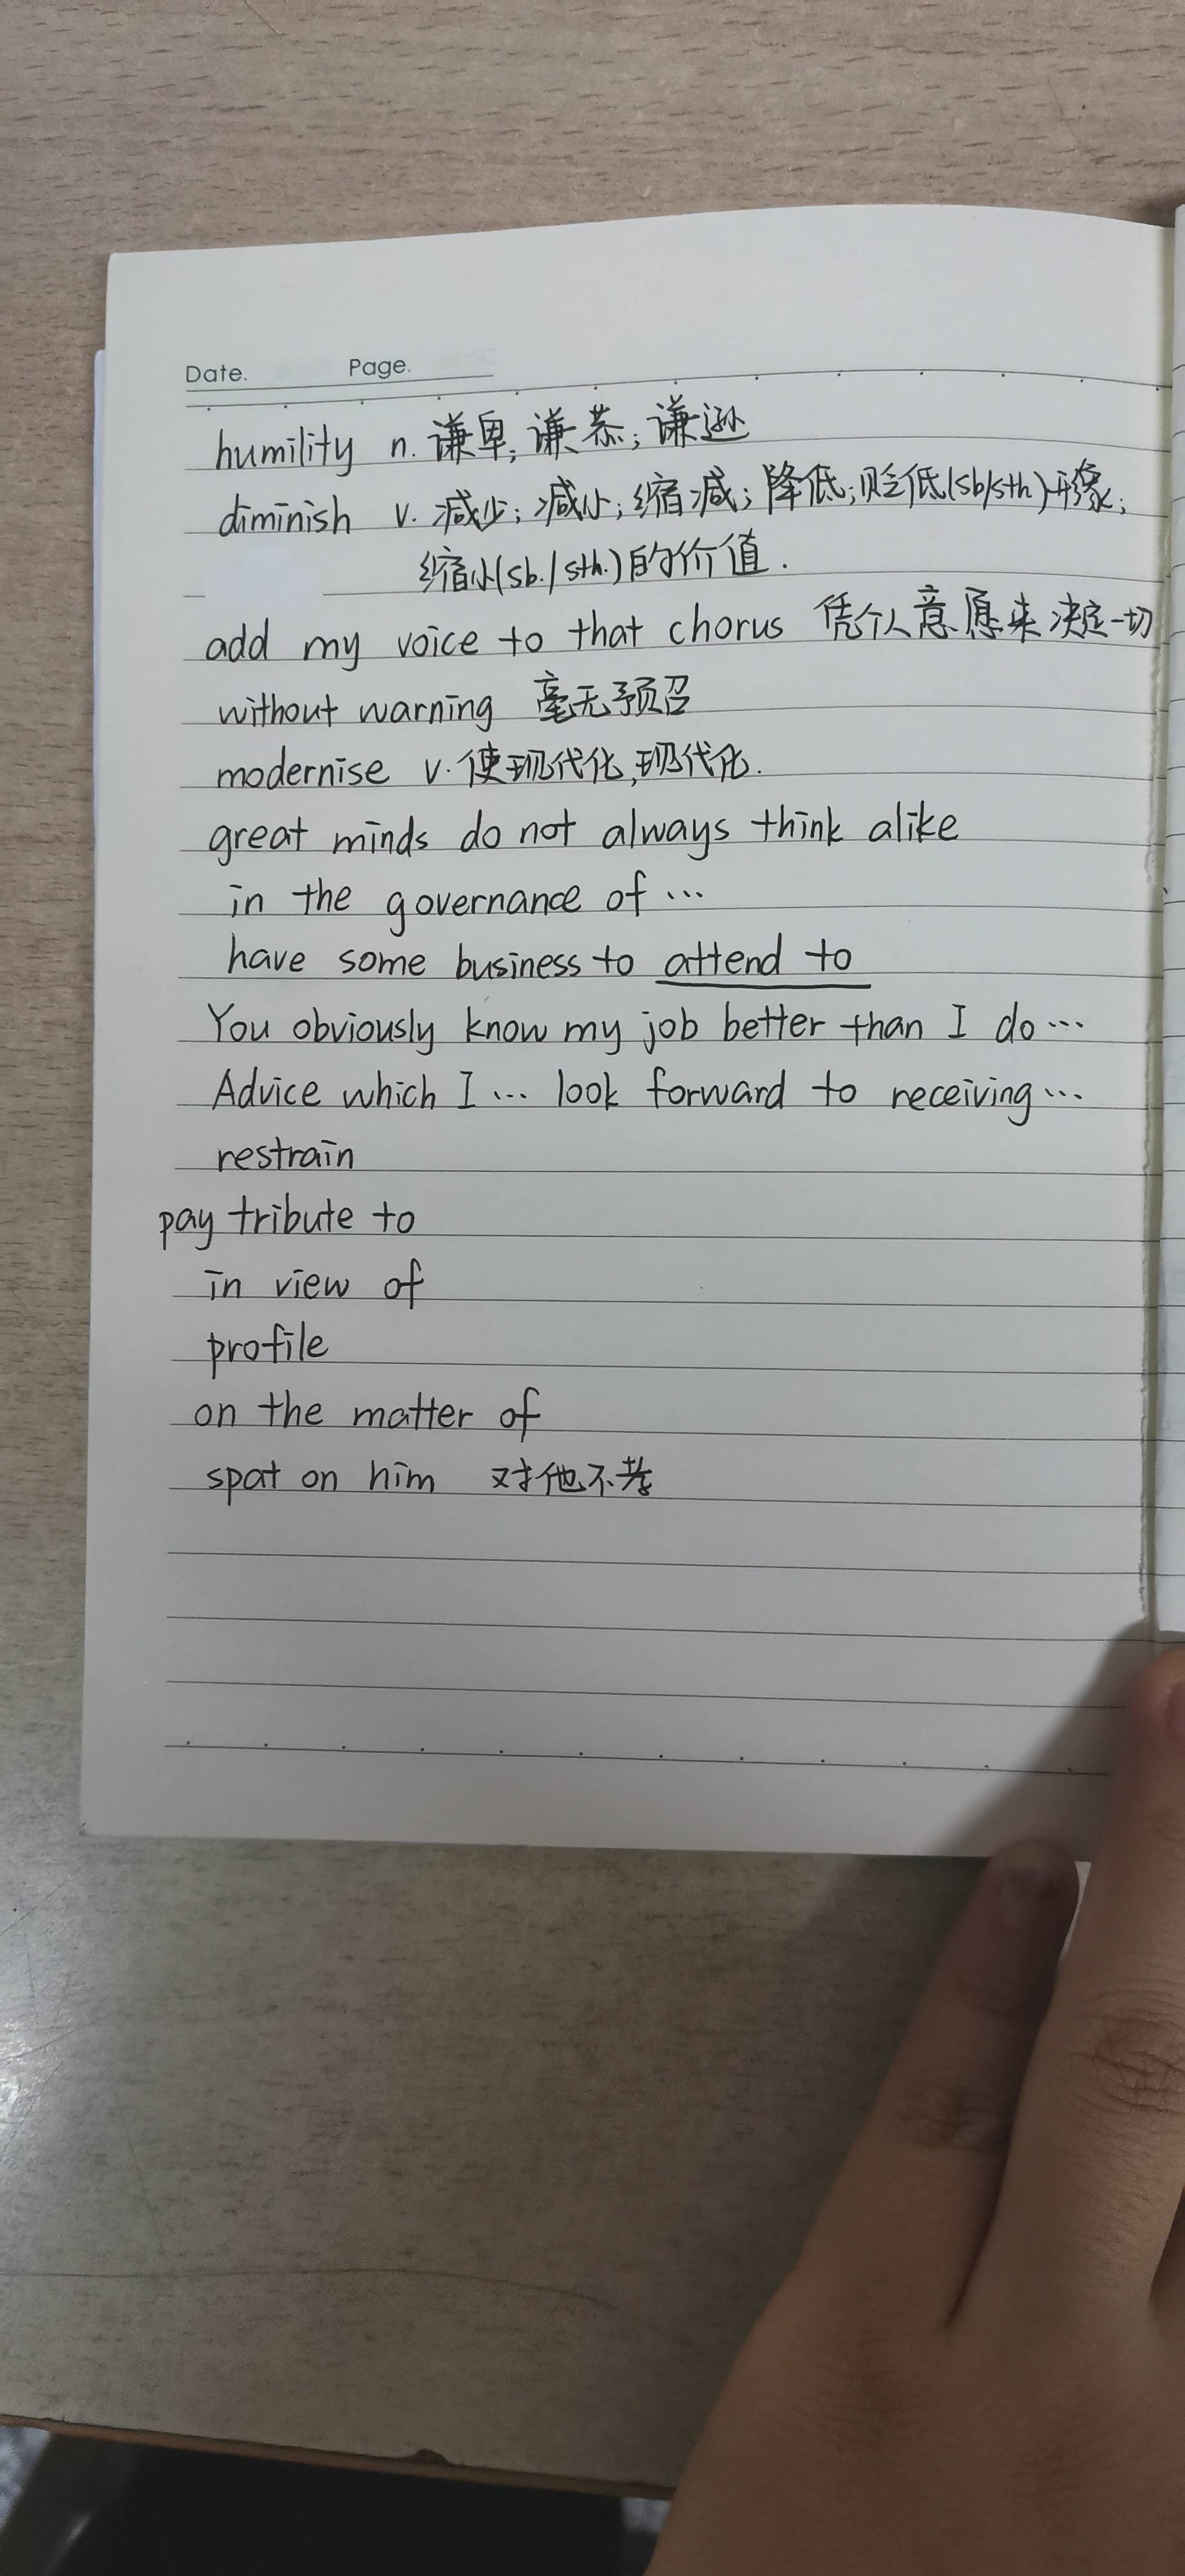 Date. Page.
humility n. 谦卑; 谦恭; 谦逊
diminish v. 减少; 减小; 缩减; 降低; 贬低(sb/sth)形象;
缩小(sb./sth.)的价值.
add my voice to that chorus 凭个人意愿来决定一切
without warning 毫无预召
modernise v. 使现代化,现代化.
great minds do not always think alike
in the governance of ...
have some business to attend to
You obviously know my job better than I do ...
Advice which I ... look forward to receiving ...
restrain
pay tribute to
in view of
profile
on the matter of
spat on him 对他不孝